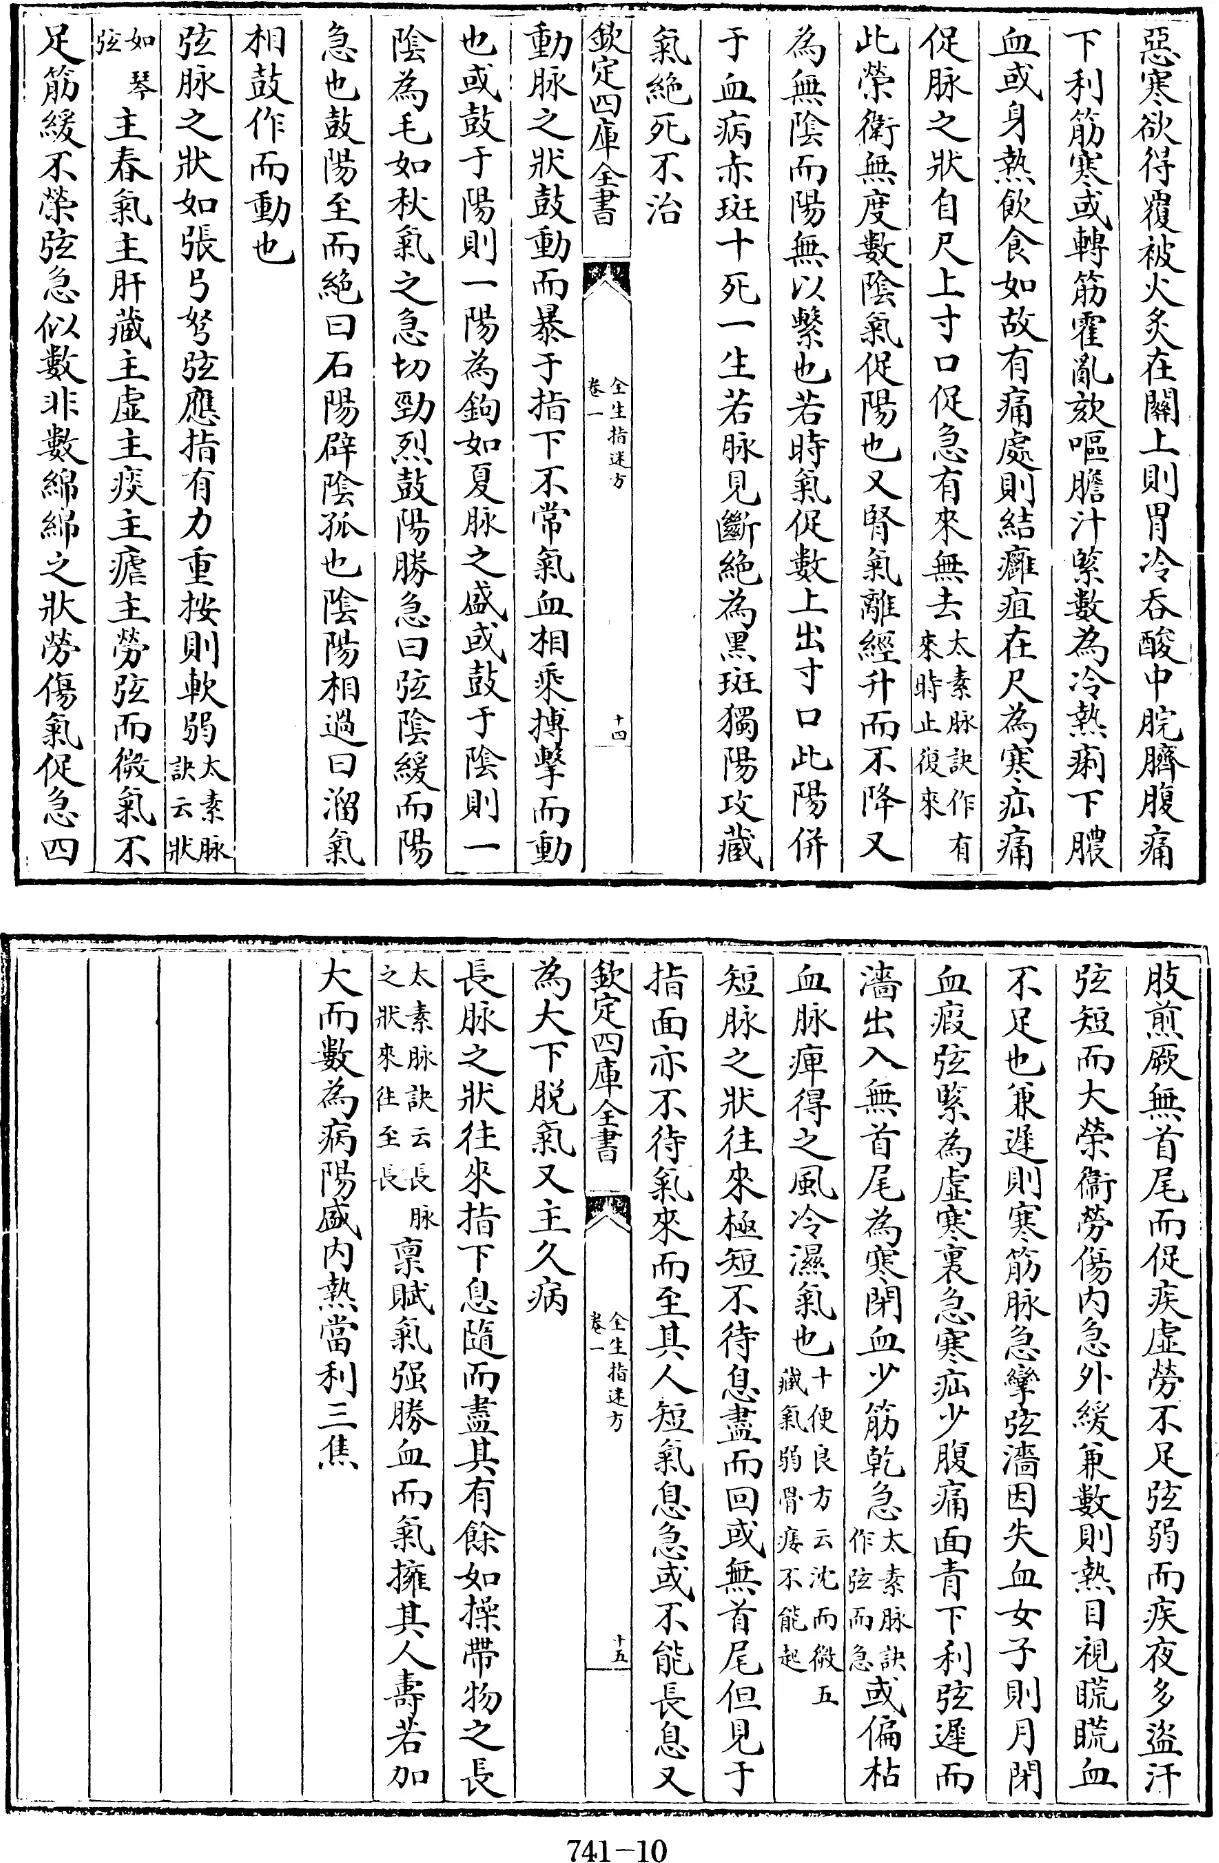 惡寒欲得覆被火炙在關上則胃冷吞酸中脘臍腹痛
下利筋寒或轉筋霍亂欬嘔膽汁緊數為冷熱痢下膿
血或身熱飲食如故有痛處則結癰疽在尺為寒疝痛
促脉之狀自尺上寸口促急有來無去太素脉訣作有來時止復來
此榮衛無度數陰氣促陽也又腎氣離經升而不降又
為無陰而陽無以繫也若時氣促數上出寸口此陽併
于血病赤斑十死一生若脉見斷絶為黑斑獨陽攻藏
氣絶死不治
欽定四庫全書 全生指迷方卷一 十四
動脉之狀鼓動而暴于指下不常氣血相乘搏擊而動
也或鼓于陽則一陽為鉤如夏脉之盛或鼓于陰則一
陰為毛如秋氣之急切勁烈鼓陽勝急曰弦陰緩而陽
急也鼓陽至而絶曰石陽辟陰孤也陰陽相過曰溜氣
相鼓作而動也
弦脉之狀如張弓弩弦應指有力重按則軟弱太素脉訣云狀
如琴弦主春氣主肝藏主虛主痰主瘧主勞弦而微氣不
足筋緩不榮弦急似數非數綿綿之狀勞傷氣促急四
肢煎厥無首尾而促疾虛勞不足弦弱而疾夜多盜汗
弦短而大榮衞勞傷内急外緩兼數則熱目視䀮䀮血
不足也兼遲則寒筋脉急攣弦濇因失血女子則月閉
血瘕弦緊為虛寒裏急寒疝少腹痛面青下利弦遲而
濇出入無首尾為寒閉血少筋乾急太素脉訣作弦而急或偏枯
血脉痺得之風冷濕氣也十便良方云沈而微五藏氣弱骨痿不能起
短脉之狀往來極短不待息盡而回或無首尾但見于
指面亦不待氣來而至其人短氣息急或不能長息又
欽定四庫全書 全生指迷方卷一 十五
為大下脱氣又主久病
長脉之狀往來指下息隨而盡其有餘如操帶物之長
太素脉訣云長脉之狀來往至長禀賦氣强勝血而氣擁其人壽若加
大而數為病陽盛内熱當利三焦
741-10